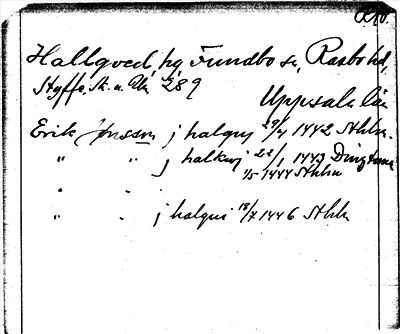 Hallqved, hg Fundbo sn, Rasbo hd,
Styffe, Sk. u. Un. 289
Uppsala län
Erik Jonsson j halquj 29/4 1442 Sthlm.
" " j halkuj 22/1 1443 Dingtuna
1/5 1444 Sthlm
" "
" " j halqui 18/7 1446 Sthlm